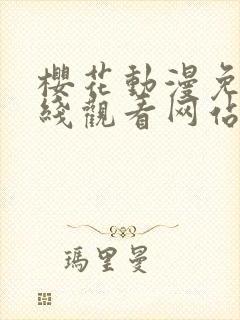 櫻花動漫免
綫觀看网佔
瑪里曼